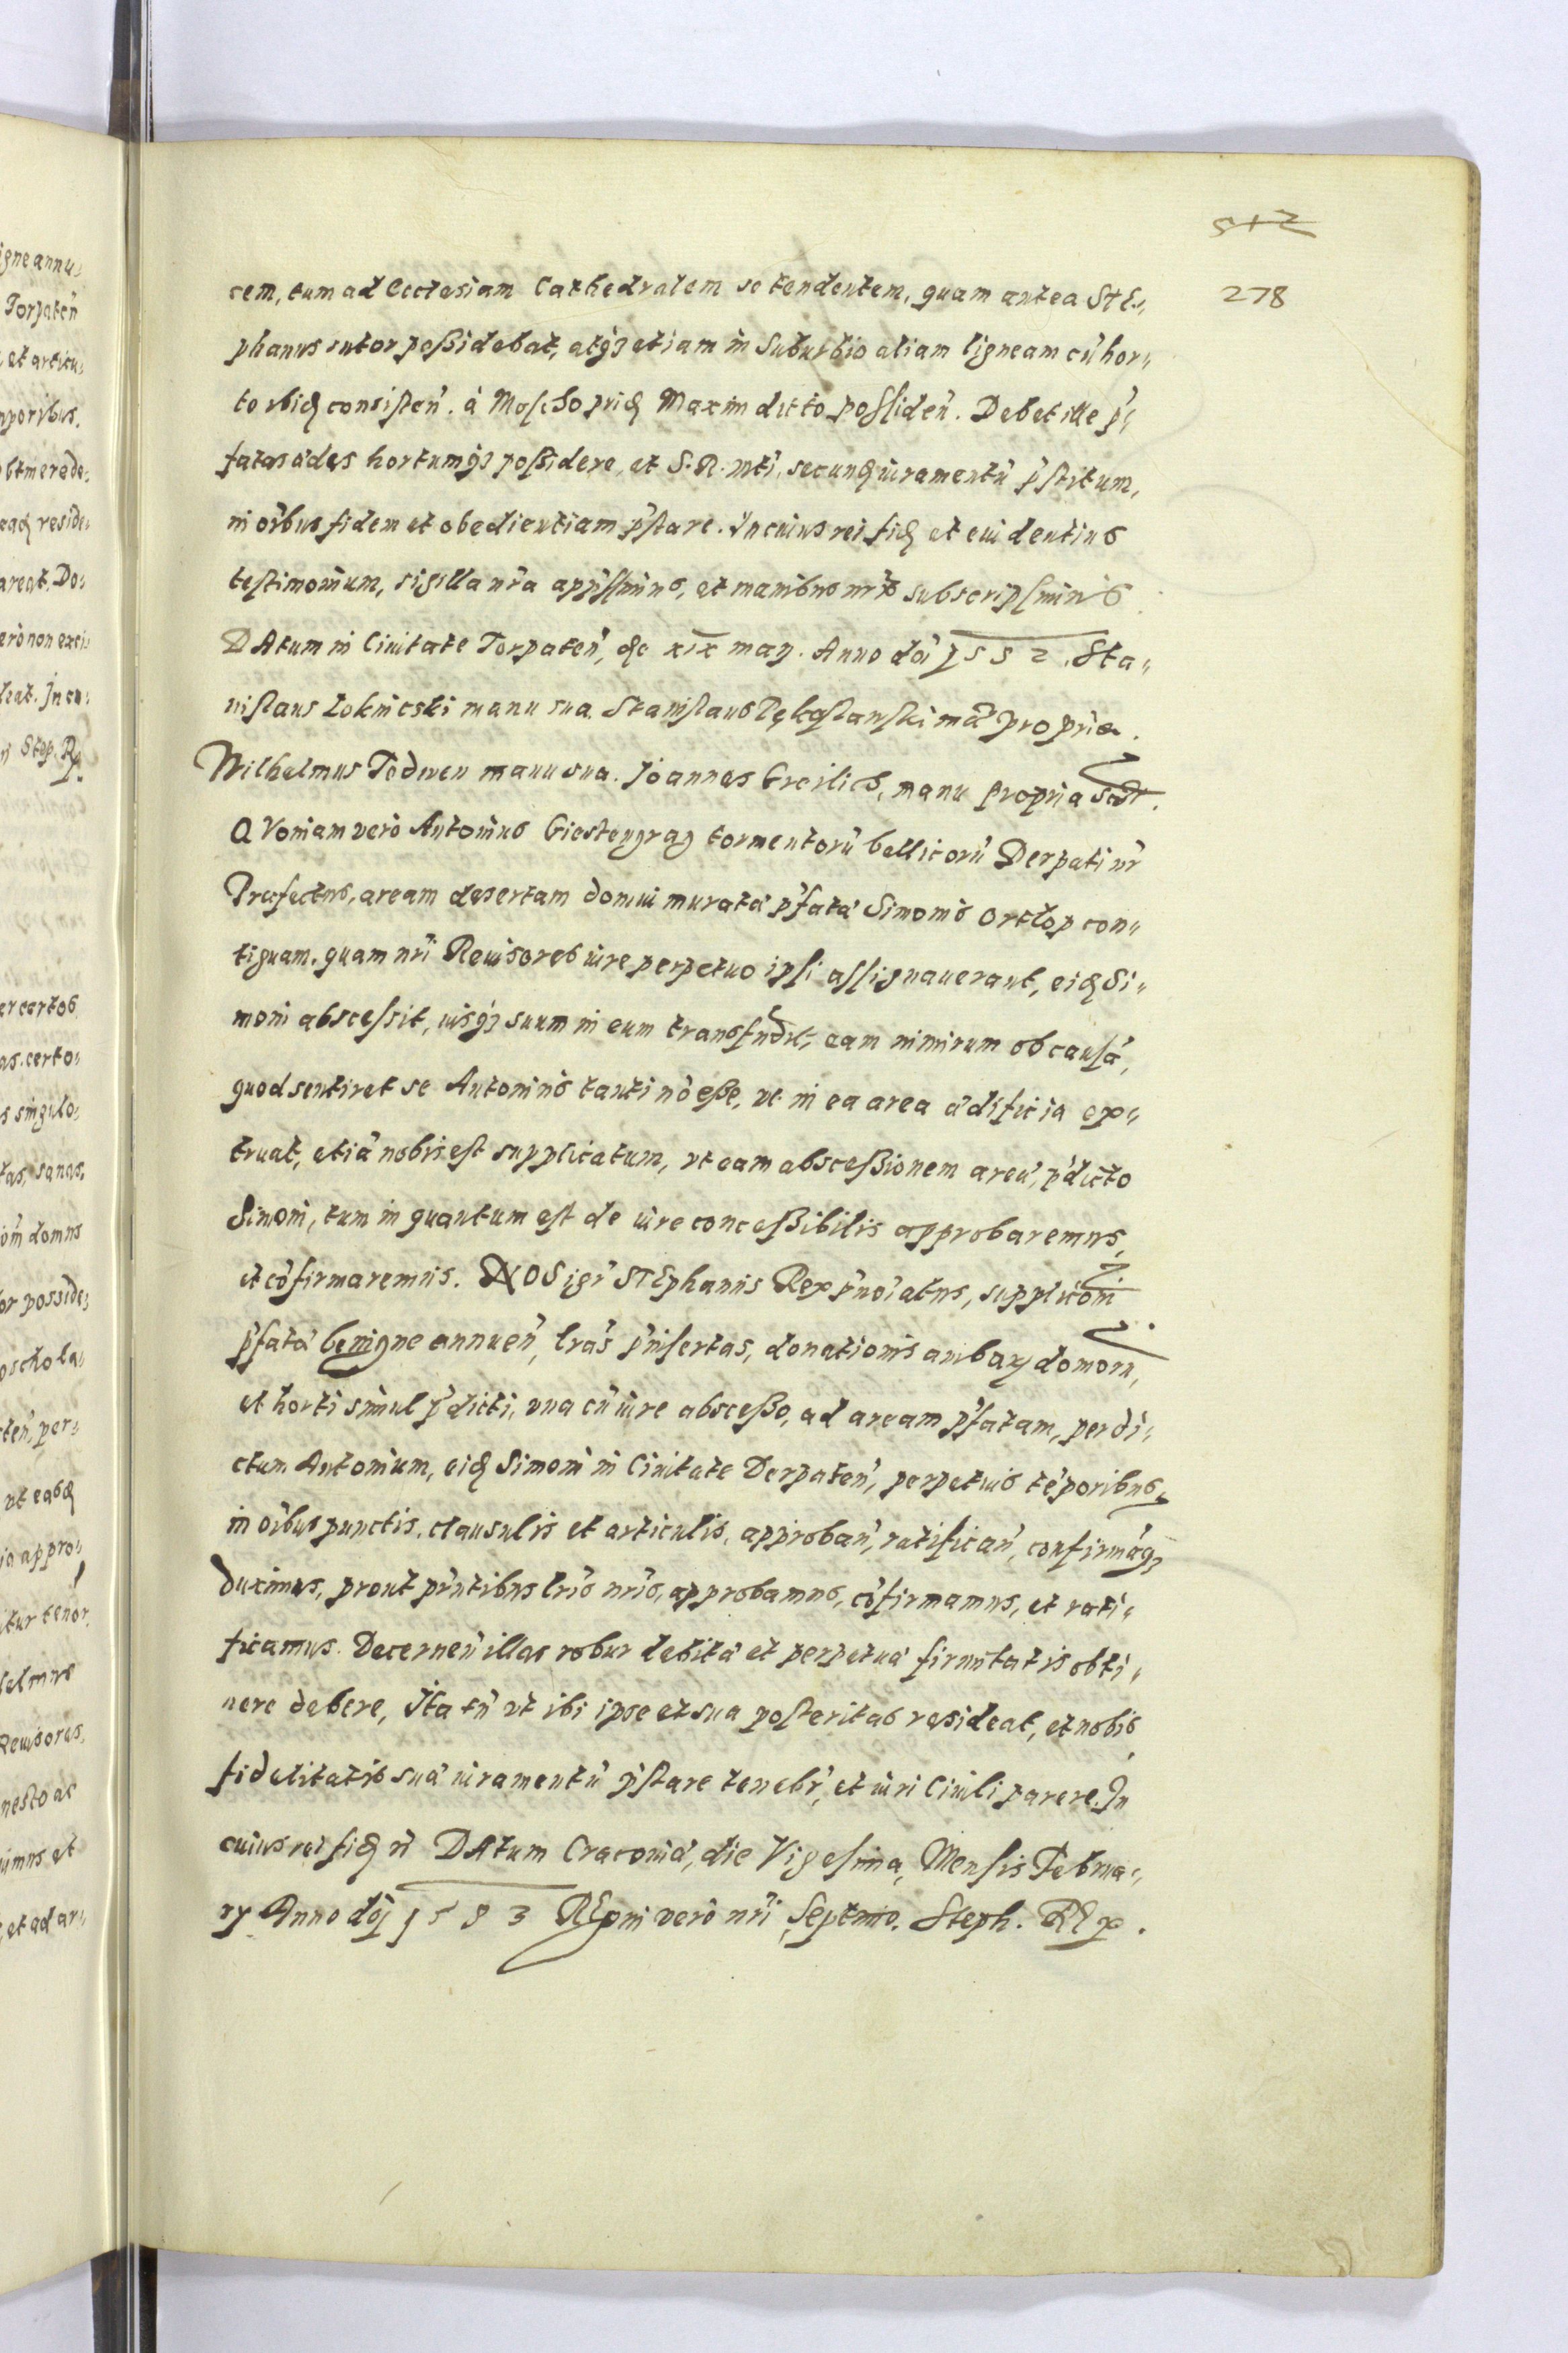 512
278
cem, tum ad Ecclesiam Cathedralem se tendentem, quam antea STE„
phanus sutor poßidebat, atq3 etiam in Suburbio aliam ligneam cu̅ hor„
to ibid consisten̅. à Moscho prid Maxim dicto possiden̅. Debet ille p̅„
fatas ædes hortumq3 poßidere, et S. R. mti, secund iuramentu̅ p̅stitum,
in o̅ibus fidem et obedientiam p̅stare. In cuius rei fid et euidentius
testimonium, sigilla n̅ra app̅ssimus, et manibus nris subscripsimus
DAtum in Ciuitate Torpaten̅, xix maij. Anno do̅i 1582. Sta„
nislaus Loknicski manu sua. Stanislaus Pękoslanski ma̅ propria.
Wilhelmus Todwen manu sua. Joannes Greilich, manu propria
QVoniam verò Antonius Giestengrag tormentoru̅ bellicoru̅ Derpati n̅r
Præfectus, aream desertam domui muratæ p̅fatæ Simonis Ortlop con„
tiguam, quam nri̅ Reuisores iure perpetuo ipsi assignauerant, eid Si„
moni abscessit, iusq3 suum in eum transfudit, eam nimirum ob causa̅,
quod sentiret se Antonius tanti no̅ eße, vt in ea area ædificia ex„
truat, etia̅ nobis est supplicatum, vt eam absceßionem areæ, p̅dicto
Simoni, tum in quantum est de iure conceßibilis approbaremus,
et co̅firmaremus. NOS igr̅ STEphanus Rex p̅noi̅atus, supplico̅ni
p̅fatæ benigne annuen̅, lra̅s p̅insertas, donationis ambarum domoru̅,
et horti simul p̅dicti, vna cu̅ iure absceßo, ad aream p̅fatam, per di„
ctum Antonium, eid Simoni in Ciuitate Derpaten̅, perpetuis te̅poribus,
in o̅ibus punctis, clausulis et articulis, approban̅, ratifican̅, confirma̅q3
duximus, prout p̅ntibus lri̅s nri̅s, approbamus, co̅firmamus, et rati„
ficamus. Decernen̅ illas robur debitæ et perpetuæ firmitatis obti„
nere debere, Ita tn̅ vt ibi ipse et sua posteritas resideat, et nobis
fidelitatis suæ iuramentu̅ p̅stare teneb̅r, et iuri Ciuili parere. In
cuius rei fid n̅ DAtum Cracouiæ, die Vigesima, Mensis Februa„
rij Anno do̅i 1583 REgni verò nri̅ Septimo. Steph. REx.